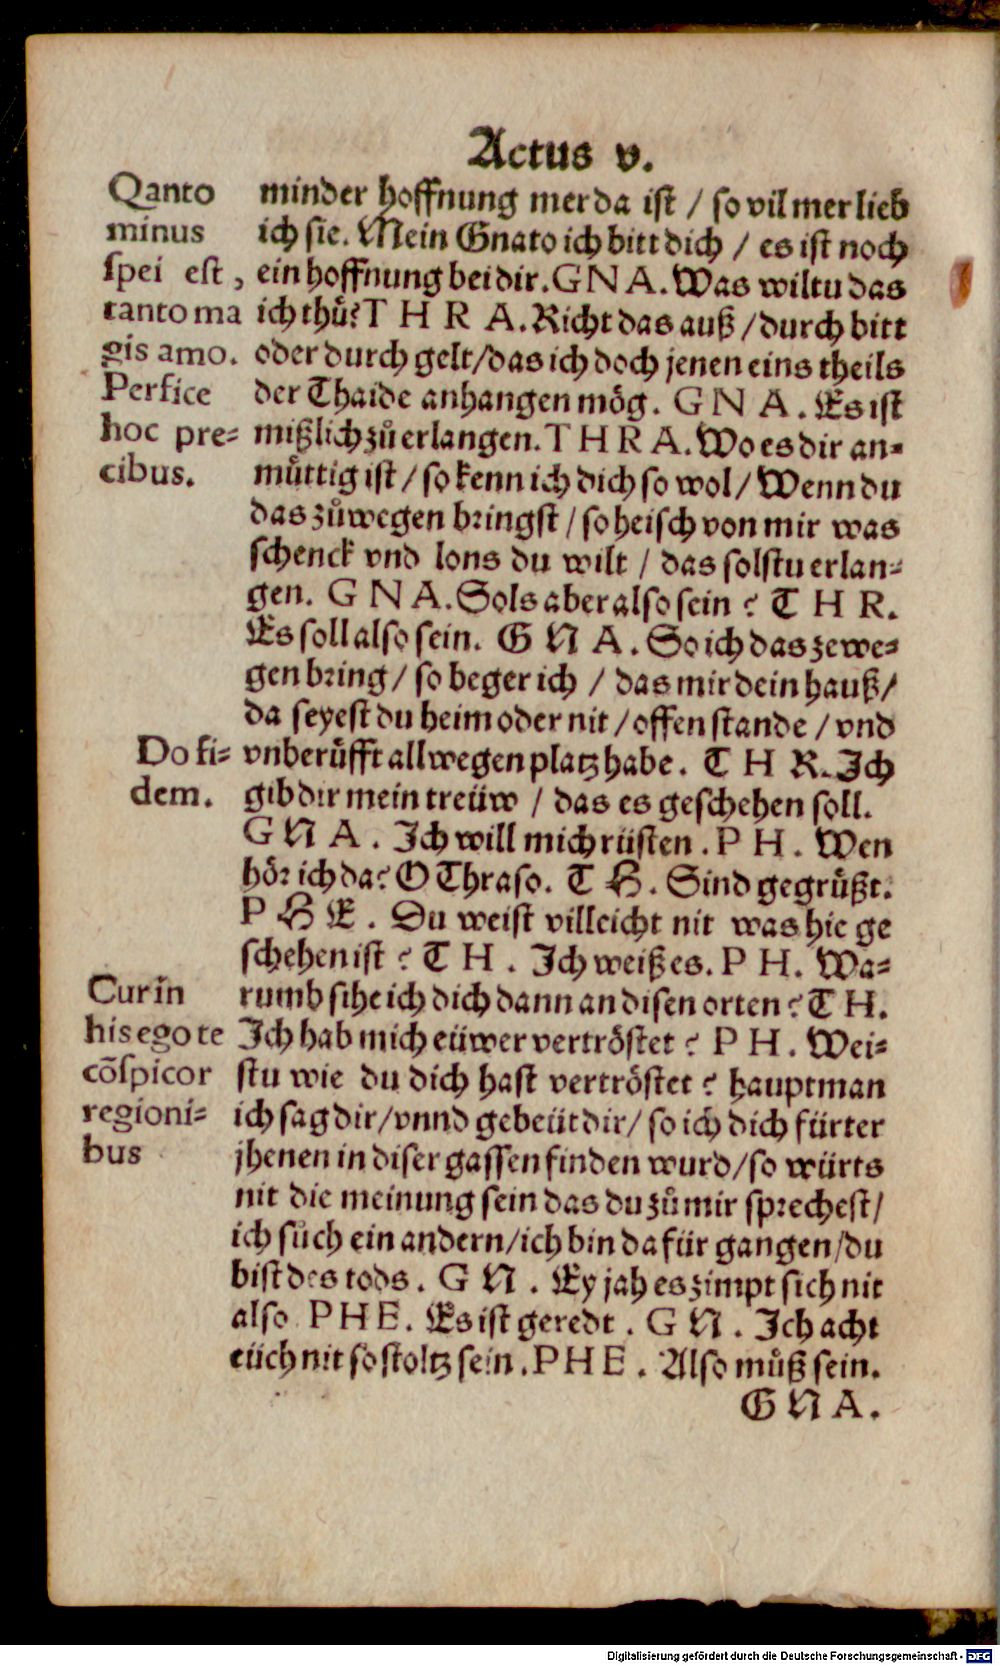 Actus v.
Qanto
minus
spei est,
tanto ma
gis amo.
Perfice
hoc pre=
cibus.
minder hoffnung mer da ist / so vil mer lieb
ich sie. Mein Gnato ich bitt dich / es ist noch
ein hoffnung bei dir. GNA. Was wiltu das
ich thuͤ? THRA. Richt das auß / durch bitt
oder durch gelt / das ich doch jenen eins theils
der Thaide anhangen moͤg. GNA. Es ist
mißlich zuͦ erlangen. THRA. Wo es dir an=
muͤttig ist / so kenn ich dich so wol / Wenn du
das zuͦwegen bringst / so heisch von mir was
schenck vnd lons du wilt / das solstu erlan=
gen. GNA. Sols aber also sein ? THR.
Es soll also sein. GNA. So ich das zewe=
gen bring / so beger ich / das mir dein hauß /
da seyest du heim oder nit / offen stande / vnd
Do fi=
dem.
vnberuͤfft allwegen platz habe. THR. Ich
gib dir mein treüw / das es geschehen soll.
GNA. Ich will mich rüsten. PH. Wen
hoͤr ich da? O Thraso. TH. Sind gegruͤßt.
PHE. Du weist villeicht nit was hie ge
schehen ist ? TH. Ich weiß es. PH. Wa=
Cur in̄
his ego te
cōspicor
regioni=
bus
rumb sihe ich dich dann an disen orten ? TH.
Ich hab mich eüwer vertroͤstet ? PH. Wei=
stu wie du dich hast vertroͤstet ? hauptman
ich sag dir / vnnd gebeüt dir / so ich dich fürter
jhenen in diser gassen finden wurd / so würts
nit die meinung sein das du zuͦ mir sprechest /
ich suͦch ein andern / ich bin da für gangen / du
bist des tods. GN. Ey jah es zimpt sich nit
also. PHE. Es ist geredt. GN. Ich acht
eüch nit so stoltz sein. PHE. Also muͦß sein.
GNA.
Digitalisierung gefördert durch die Deutsche Forschungsgemeinschaft - DFG